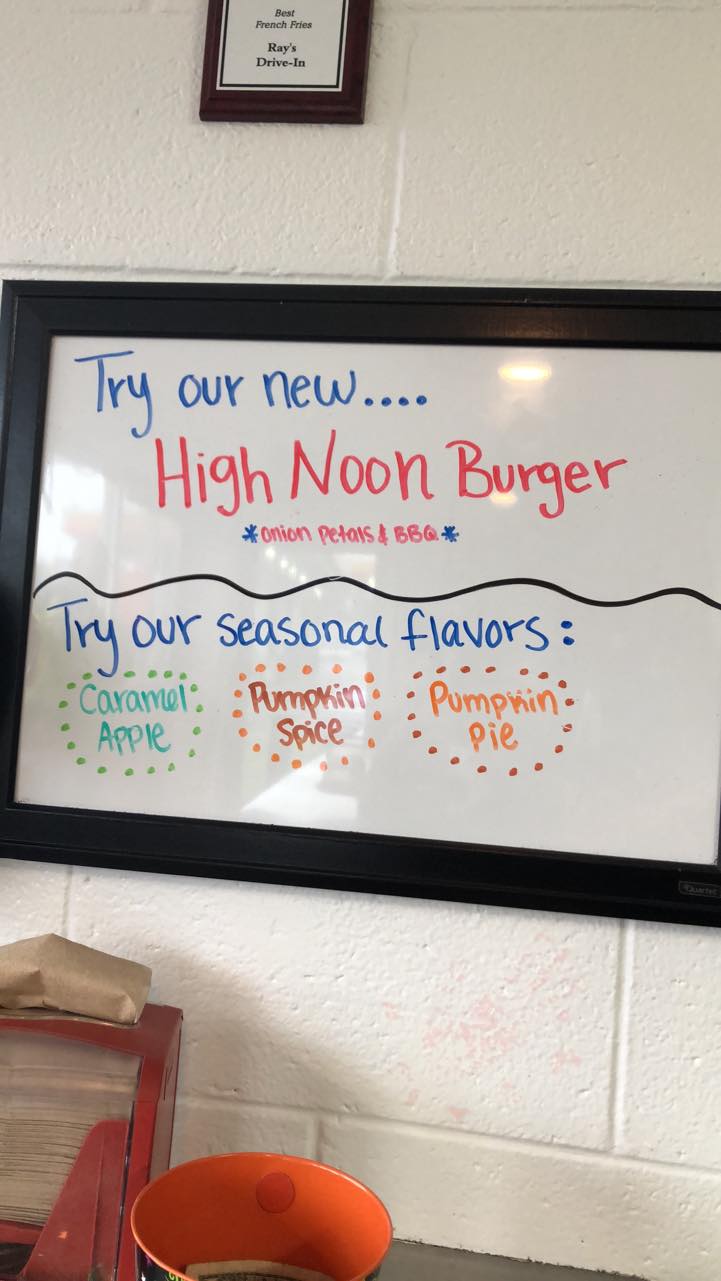 Best
French Fries
Ray's
Drive-In
Try our new....
High Noon Burger
*onion petals & BBQ*
Try our seasonal flavors:
Caramel
Apple
Pumpkin
Spice
Pumpkin
pie
Quartet